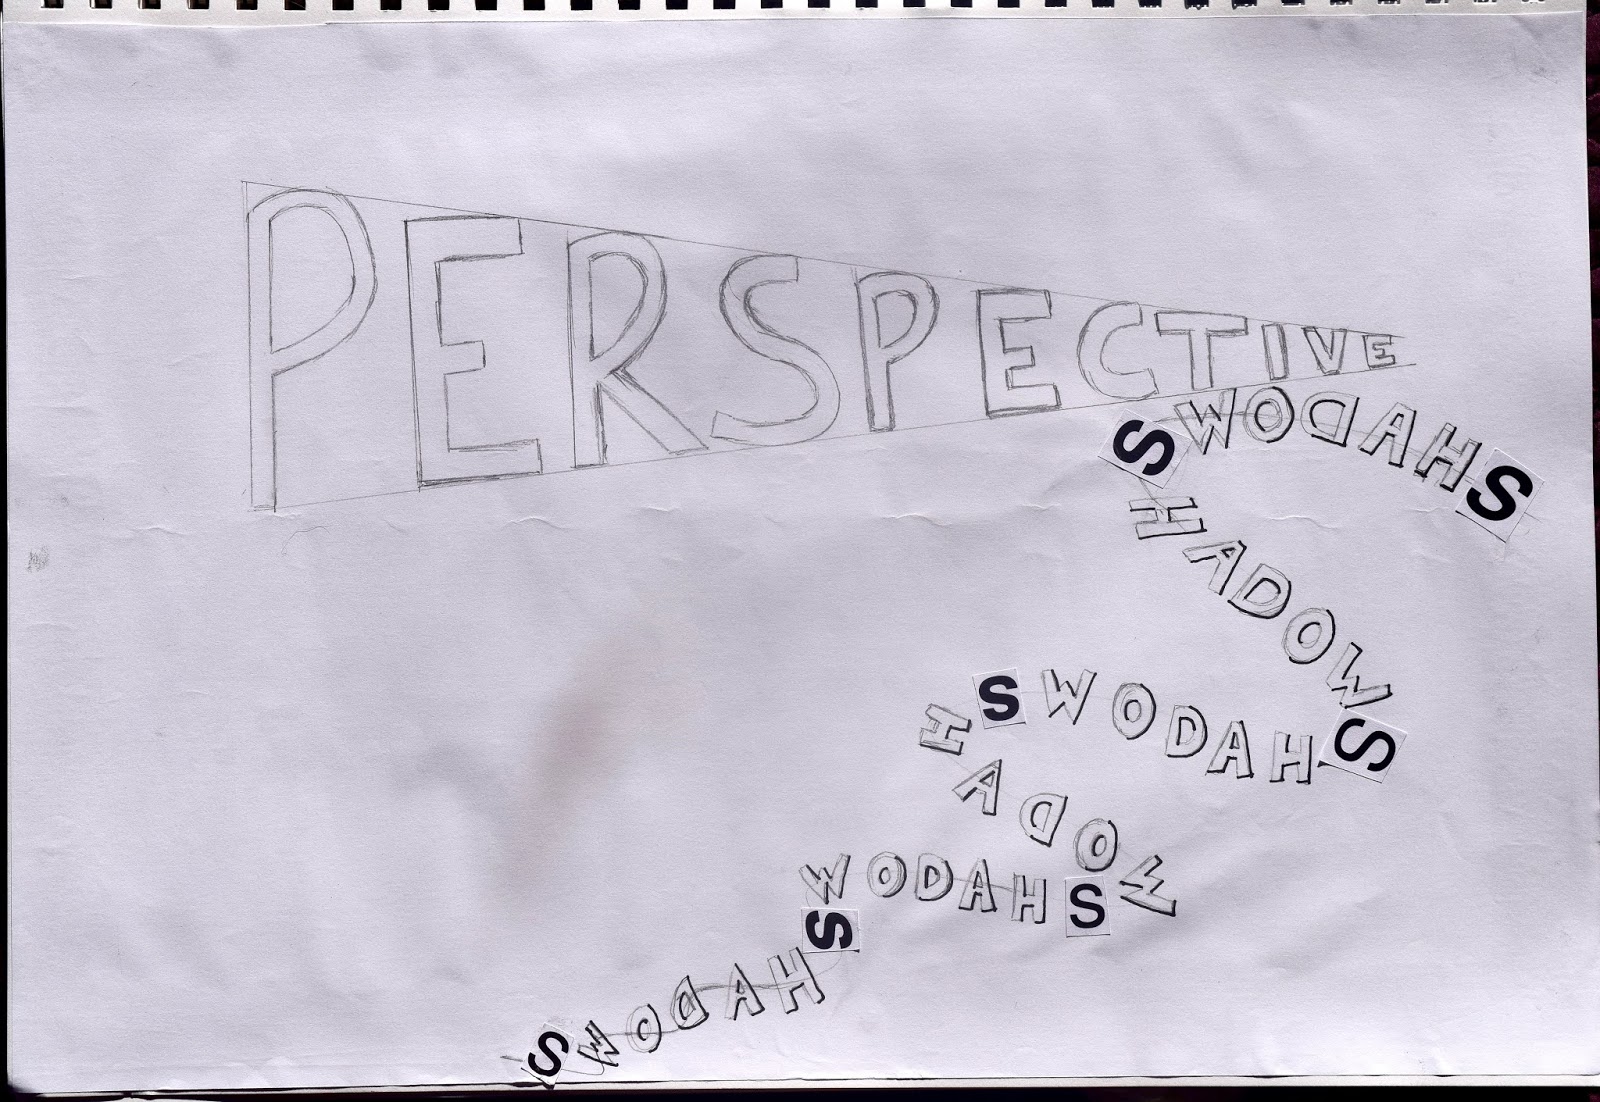 PERSPECTIVE
SWODAHS
HADOW
SWODAHS
HADOW
WODAHS
SWODAHS